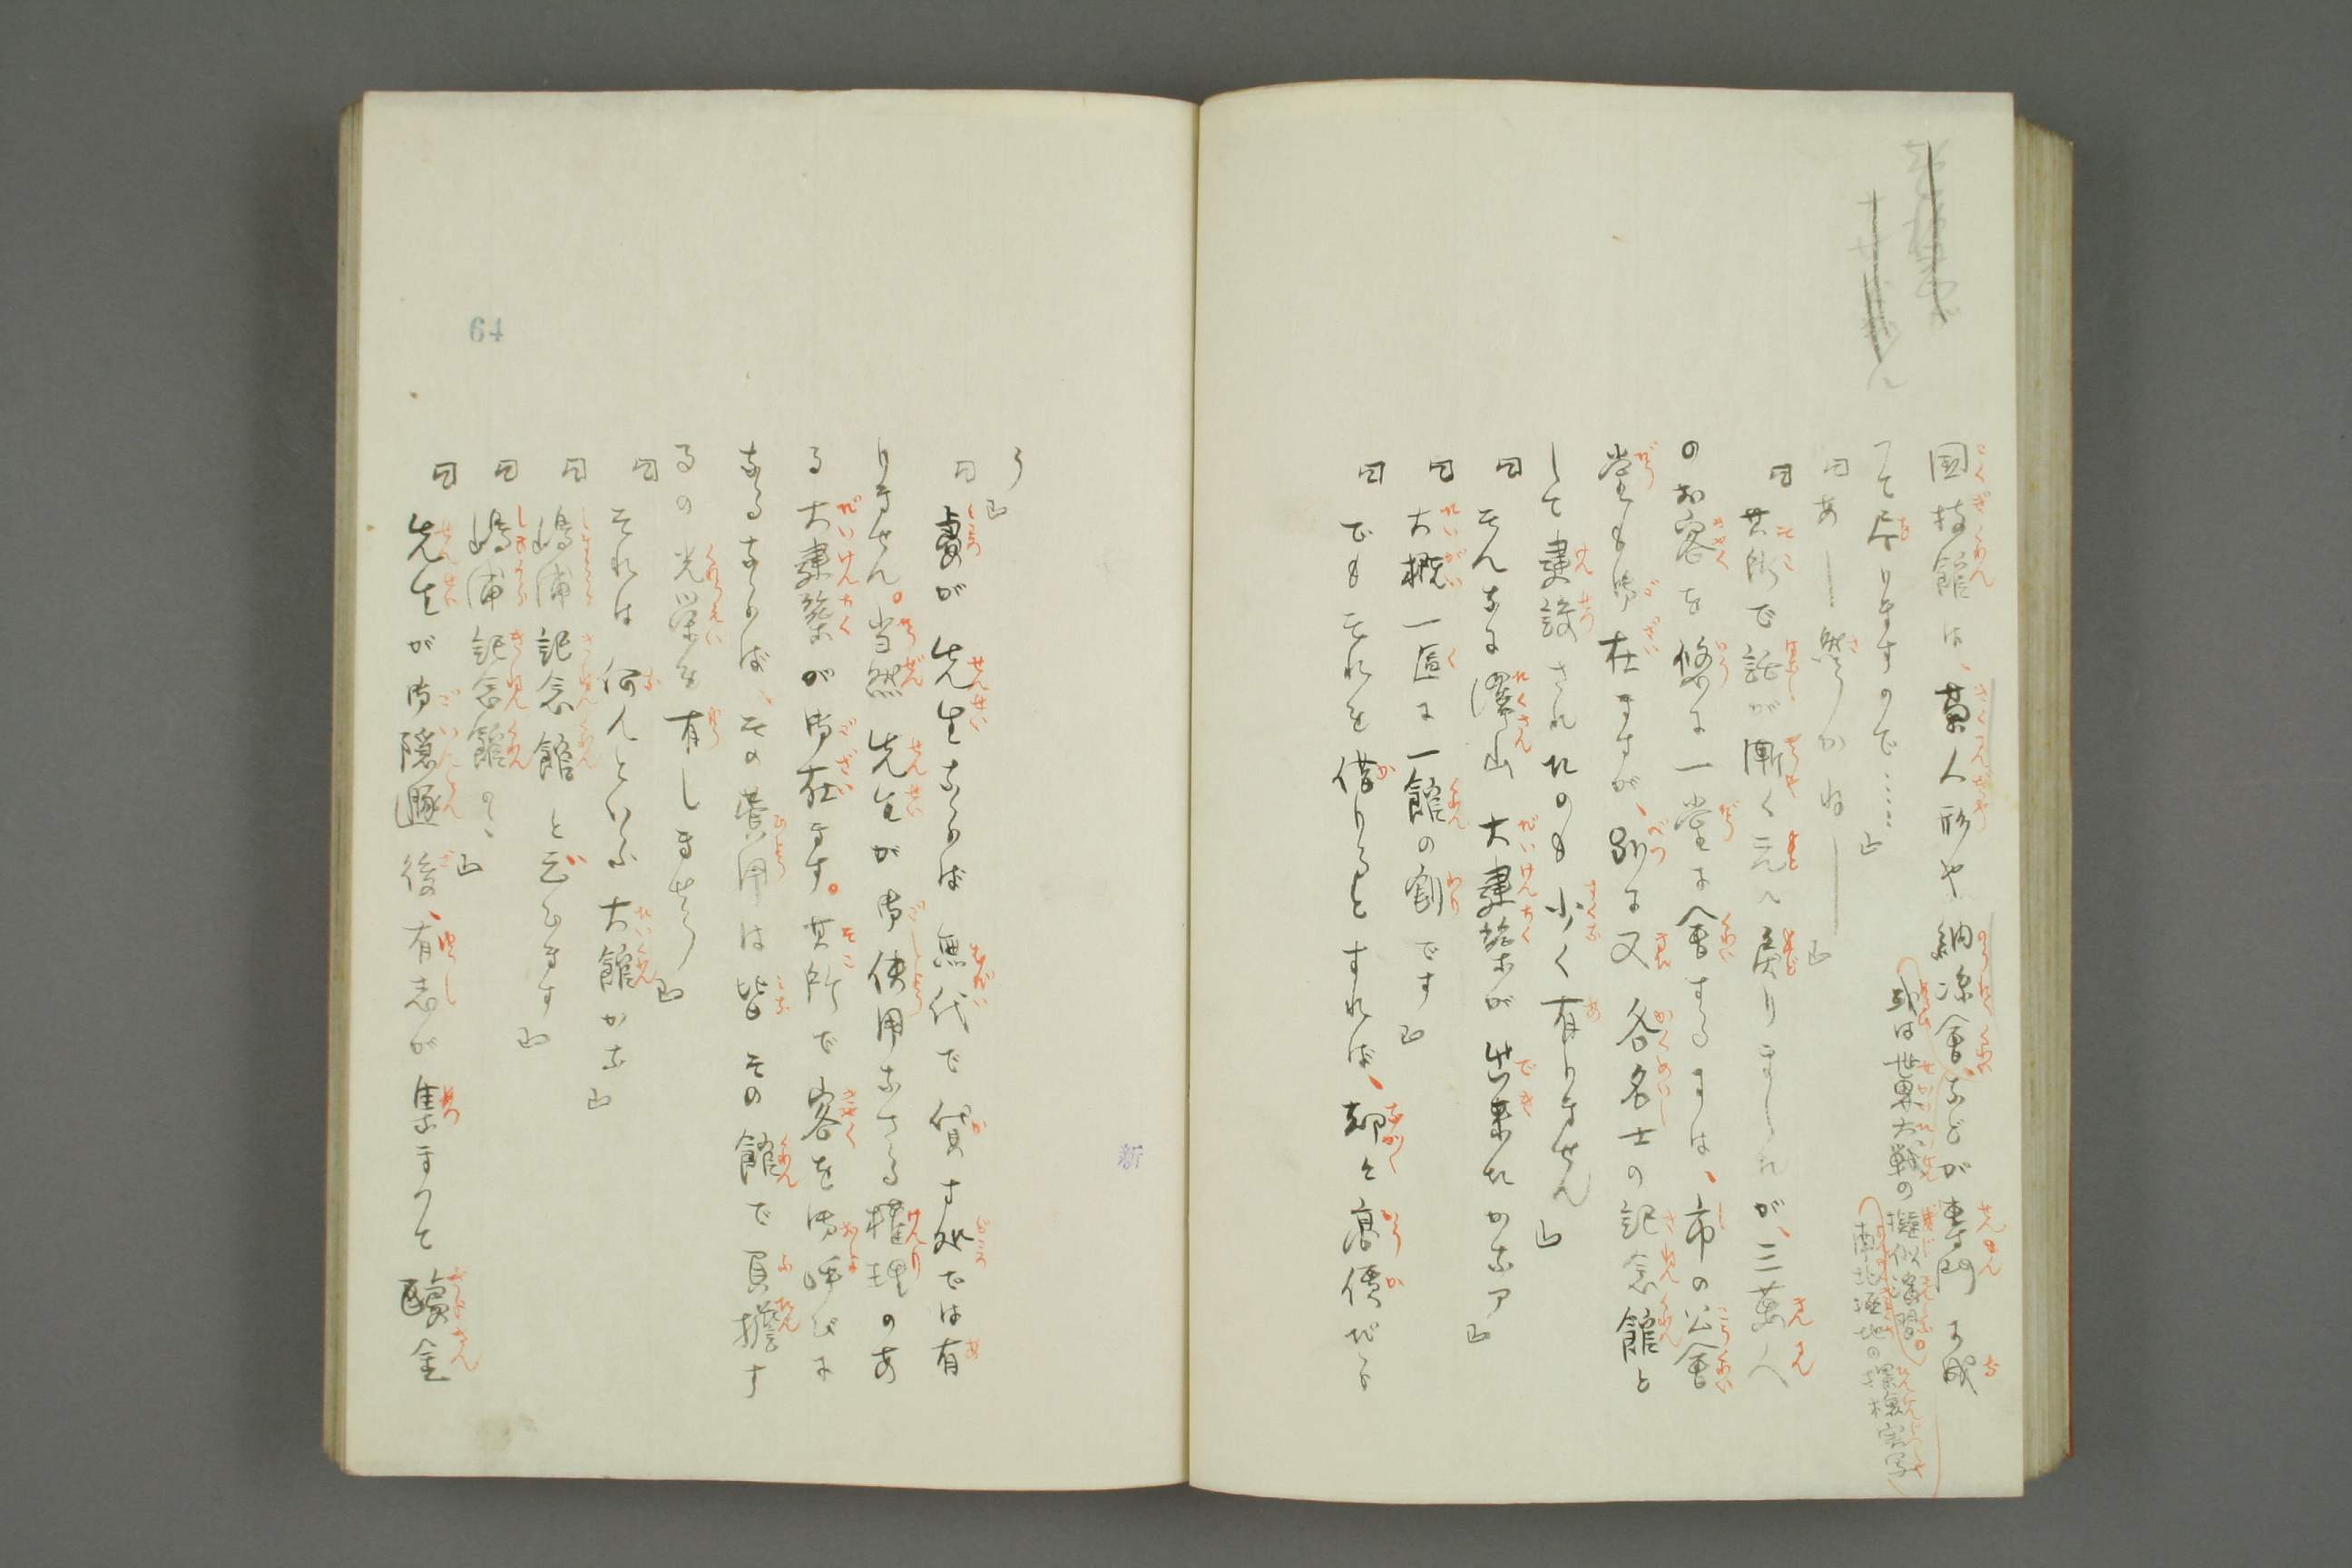 国技館は、菊人形や納涼會などが專門に成
或は世界大戦の擬似演習。
南北極地の探検実写
つて居りますので……」
「あー然うかねー」
「其所で話が漸く元へ戻りましたが、三萬人
のお客を悠に一堂に會するには、市の公會
堂も御在ますが、別に又各名士の記念館と
して建設されたのも少く有りません」
「そんなに澤山大建築が出来たかなア」
「大概一區に一館の割です」
「でもそれを借りるとすれば、却々高價だら
う」
「處が先生ならば無代で貸す處では有
りません。当然先生が御使用なさる権理のあ
る大建築が御在ます。其所で客を御呼びに
なるならば、その費用は皆その館で負擔す
るの光栄を有しませう」
「それは何んといふ大館かな」
「嶋浦記念館と云ひます」
「嶋浦記念館の、」
「先生が御隠遯後、有志が集まつて醵金
64
新